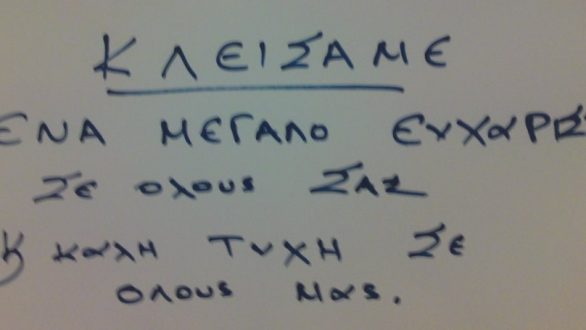 ΚΛΕΙΣΑΜΕ
ΕΝΑ ΜΕΓΑΛΟ ΕΥΧΑΡΙΣ
ΣΕ ΟΛΟυς ΣΑΣ
Κ ΚΑΛΗ ΤΥΧΗ ΣΕ
ΟΛΟυς ΜΑς.